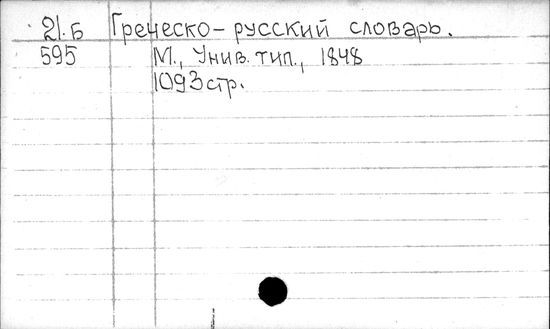 21.Б Греческо-русский словарь.
595 М., Унив. тип., 1848
1093 стр.